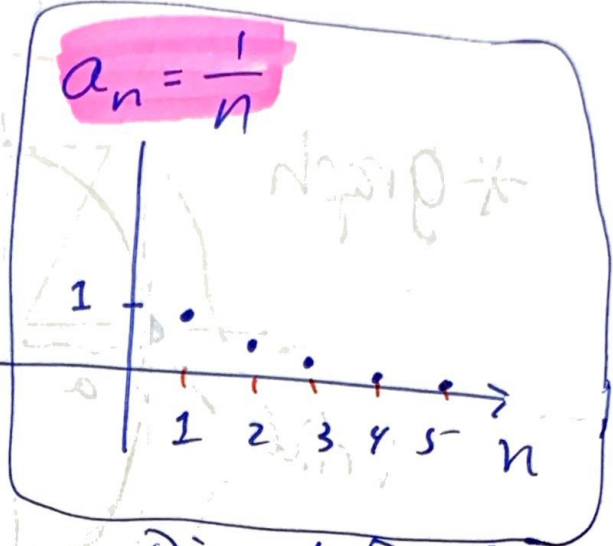 aₙ = 1/n
1
1 2 3 4 5 n